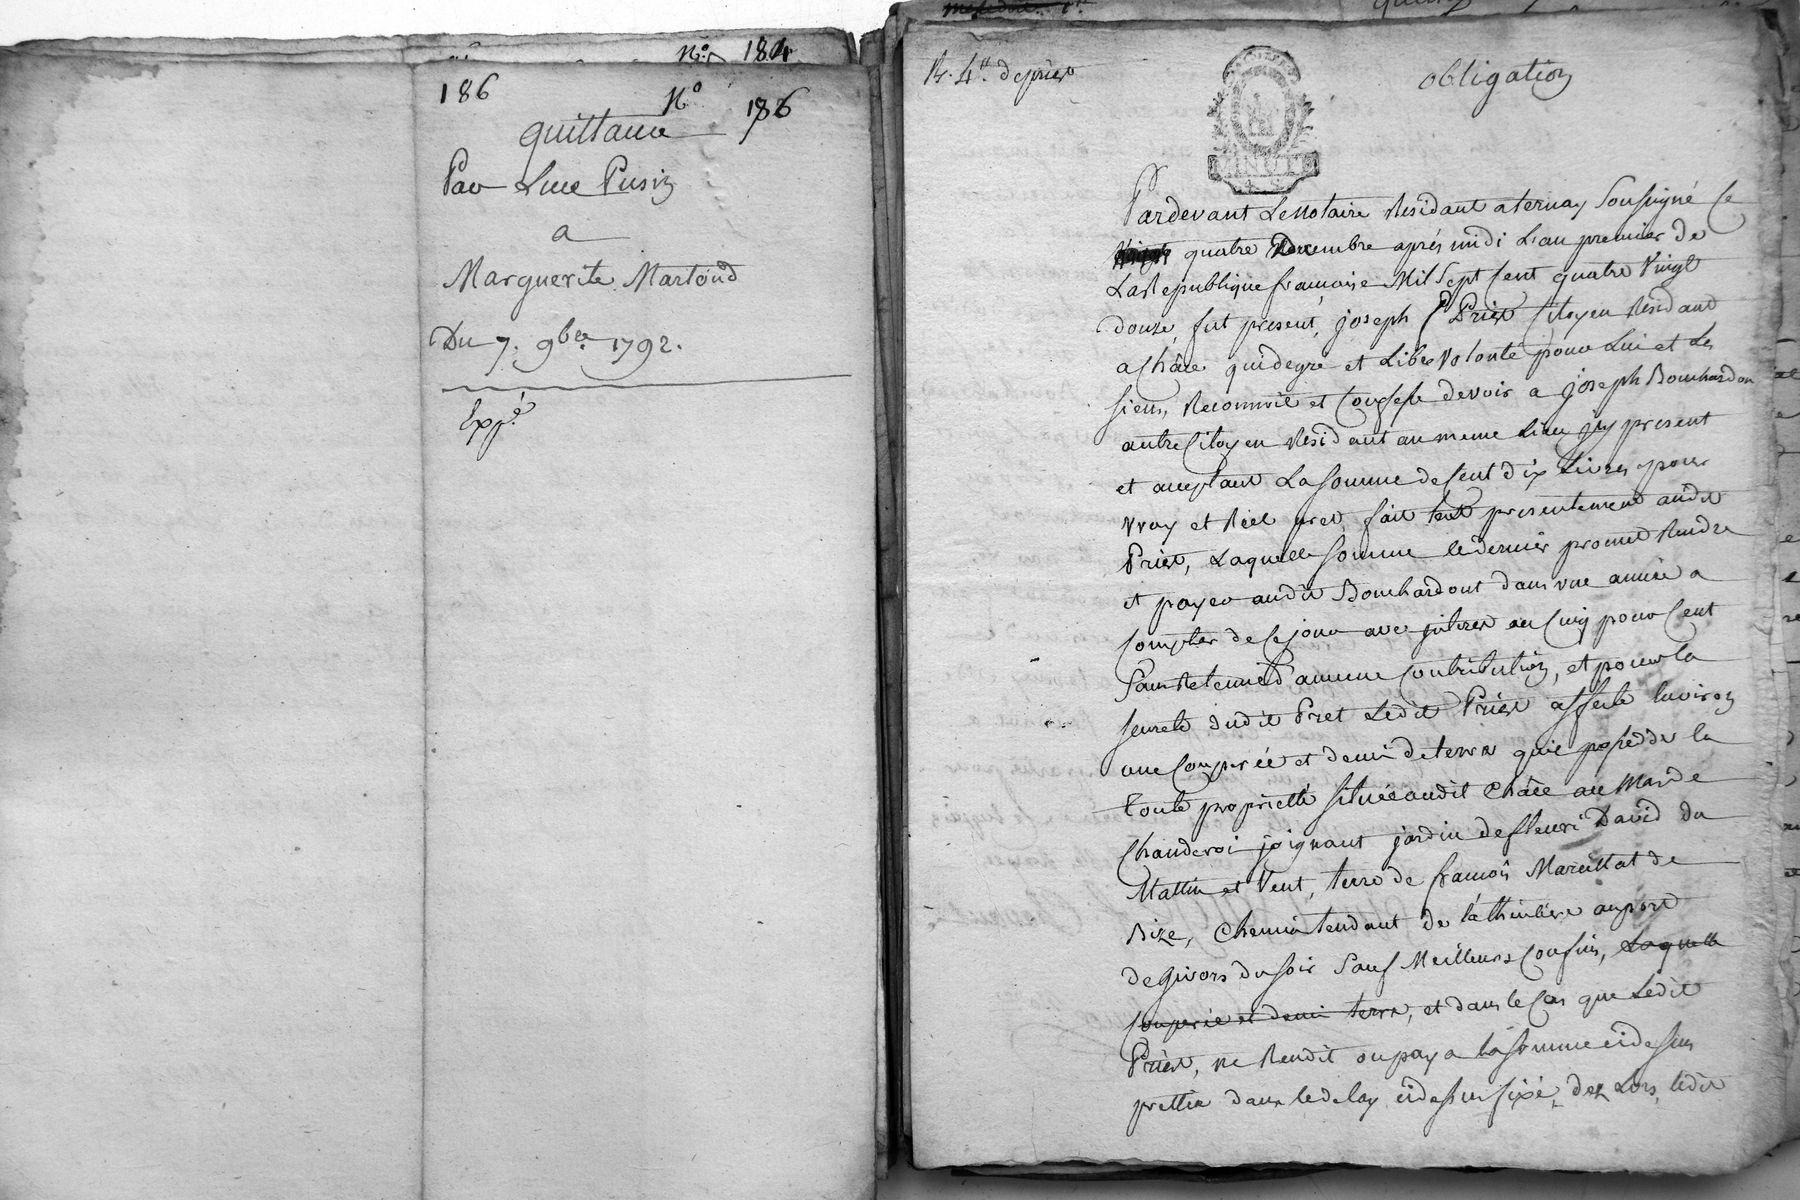 N.° 184
186
N° 186
quittance
Par Luce Pusin
a
Marguerite Martoud
Du 7. 9bre. 1792.
Exp.é
obligation
MINUTE
Pardevant Le Notaire Residant a ternay Soussigné Ce
quatre Decembre aprés midi L'an premier de
La Republique francaise Mil Sept Cent quatre Vingt
douze, fut present, joseph Priest Citoyen Residant
a Châre qui de gré et Libre Volonté pour Lui et Les
siens, Reconnoit et Confesse devoir a joseph Bouchardon
autre Citoyen Résidant au meme Lieu jcy present
et acceptant La somme de Cent dix Livres pour
Vray et Réel pret, fait presentement audit
Priest, Laquelle somme le dernier promet Rendre
et payer audit Bouchardout dans une année a
Compter de Ce jour avec jnterest au Cinq pour Cent
Sans Retenue d'aucune Contribution, et pour la
sureté dudit Pret Ledit Priest affecte Environ
une Couperée et demi de terre qu'il possedde en
toute proprietté située audit Châre au Mas de
Chanderoi joignant jardin de fleuri David du
Mattin et Vent, terre de francois Marcellat de
Bize, Chemin tendant de au port
de Givors du soir Sauf Meilleurs Confins, Laquelle
Couperée et demi terre, et dans le Cas que Ledit
Priest, ne Rendit ou paya la somme cidessus
prettée dans le delay cidessus fixé, dez Lors, ledit